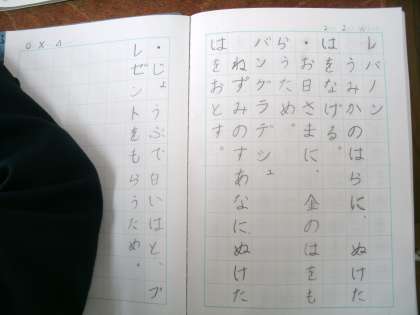 レバノン
うみかのはらに、ぬけた
はをなげる。
・お日さまに、金のはをも
らうため。
バングラデシュ
ねずみのすあなに、ぬけた
はをおとす。
・じょうぶで白いはと、プ
レゼントをもらうため。